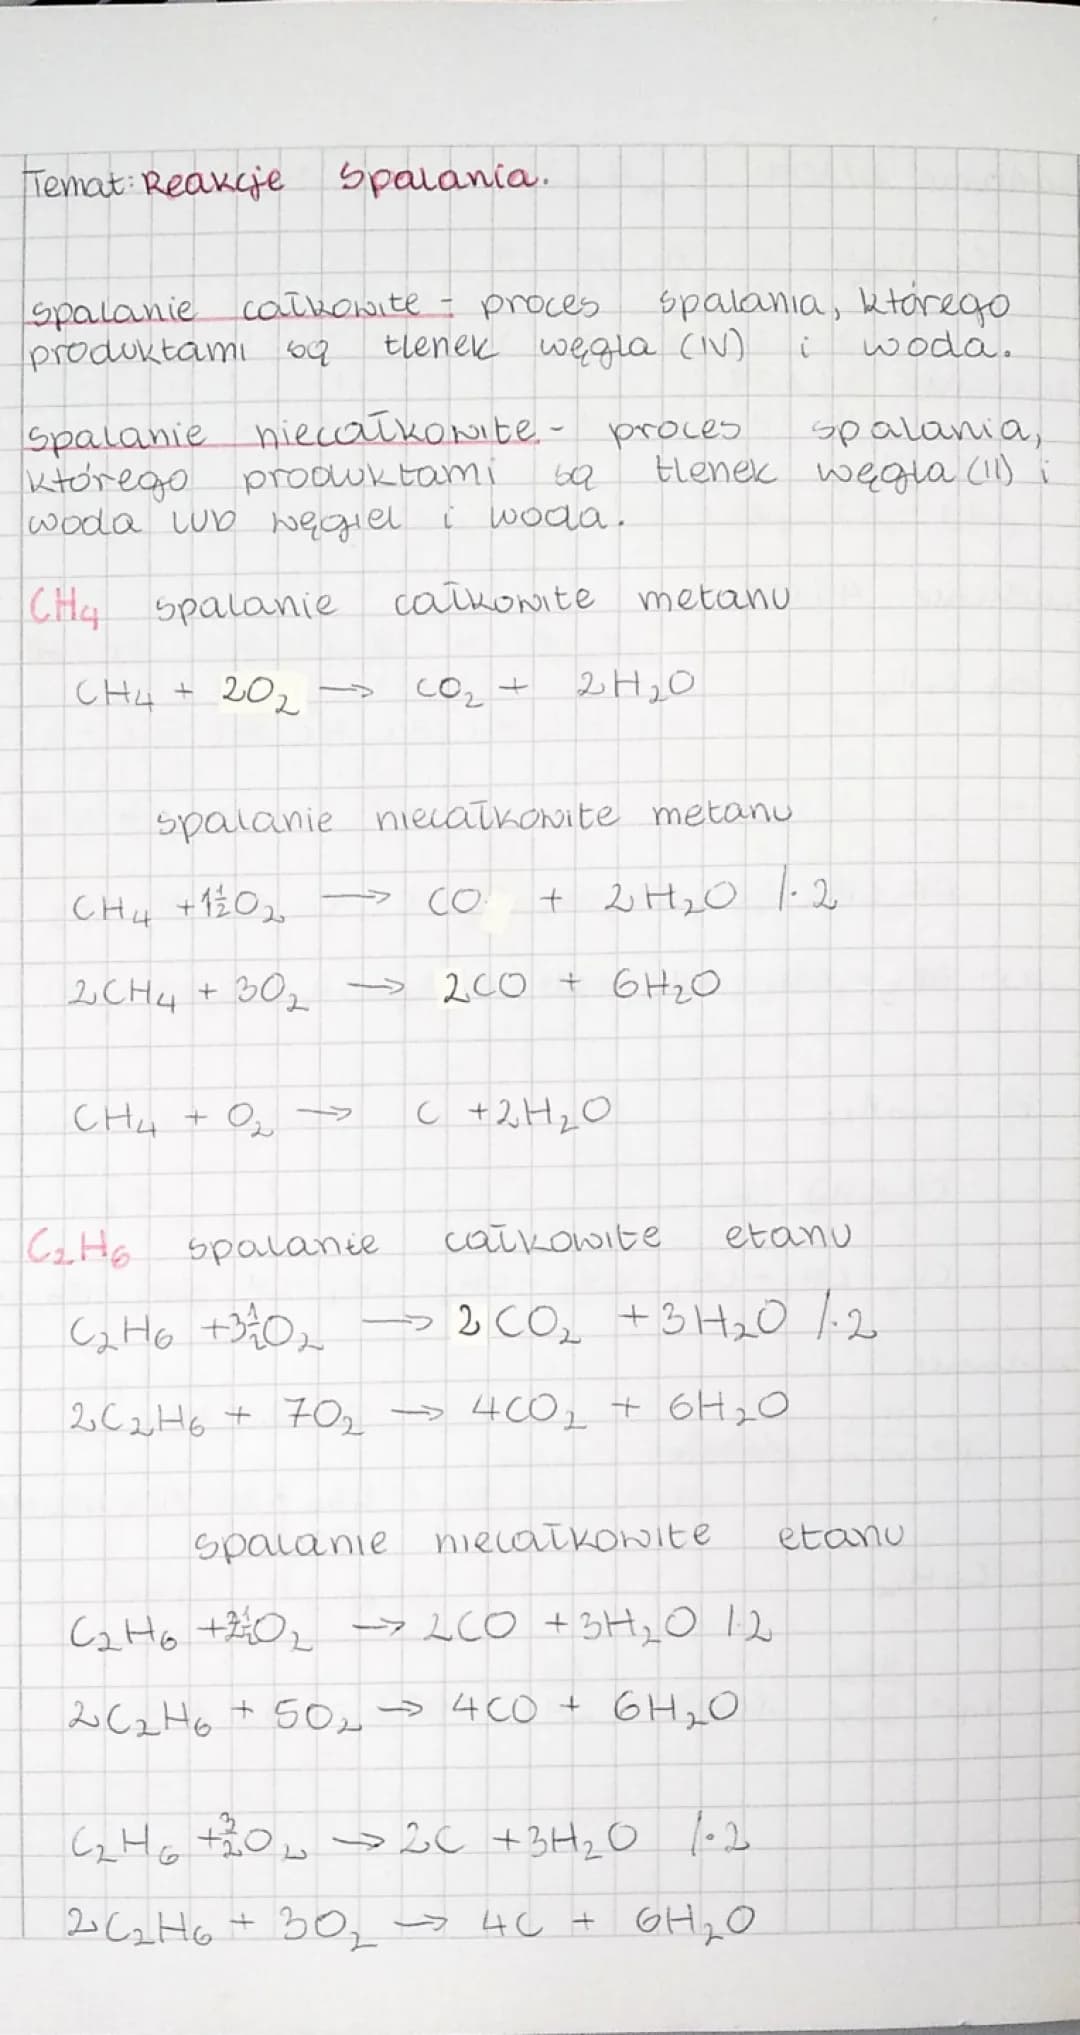 Temat: Reakcje spalania.
spalanie całkowite - proces spalania, którego
produktami są tlenek węgla (IV) i woda.
spalanie niecałkowite - proces spalania,
którego produktami są tlenek węgla (II) i
woda lub węgiel i woda.
CH₄ spalanie całkowite metanu
CH₄ + 2O₂ → CO₂ + 2H₂O
spalanie niecałkowite metanu
CH₄ + 1½O₂ → CO + 2H₂O /·2
2CH₄ + 3O₂ → 2CO + 6H₂O
CH₄ + O₂ → C + 2H₂O
C₂H₆ spalanie całkowite etanu
C₂H₆ + 3½O₂ → 2CO₂ + 3H₂O /·2
2C₂H₆ + 7O₂ → 4CO₂ + 6H₂O
spalanie niecałkowite etanu
C₂H₆ + 2½O₂ → 2CO + 3H₂O /·2
2C₂H₆ + 5O₂ → 4CO + 6H₂O
C₂H₆ + 3/2O₂ → 2C + 3H₂O /·2
2C₂H₆ + 3O₂ → 4C + 6H₂O